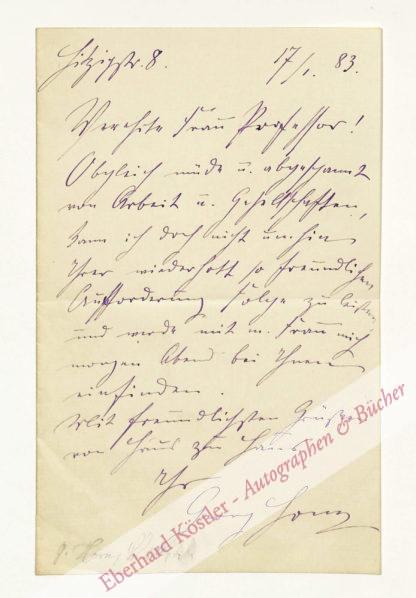 Hitzigstr. 8. 17/1. 83.
Verehrte Frau Professor!
Obgleich müde u. abgespannt
von Arbeit u. Gesellschaften,
kann ich doch nicht umhin
Ihrer wiederholt so freundlichen
Aufforderung Folge zu leisten
und werde mit m. Frau mich
morgen Abend bei Ihnen
einfinden.
Mit freundlichsten Grüßen
von Haus zu Haus
Ihr
Georg Horn
Eberhard Köstler - Autographen & Bücher